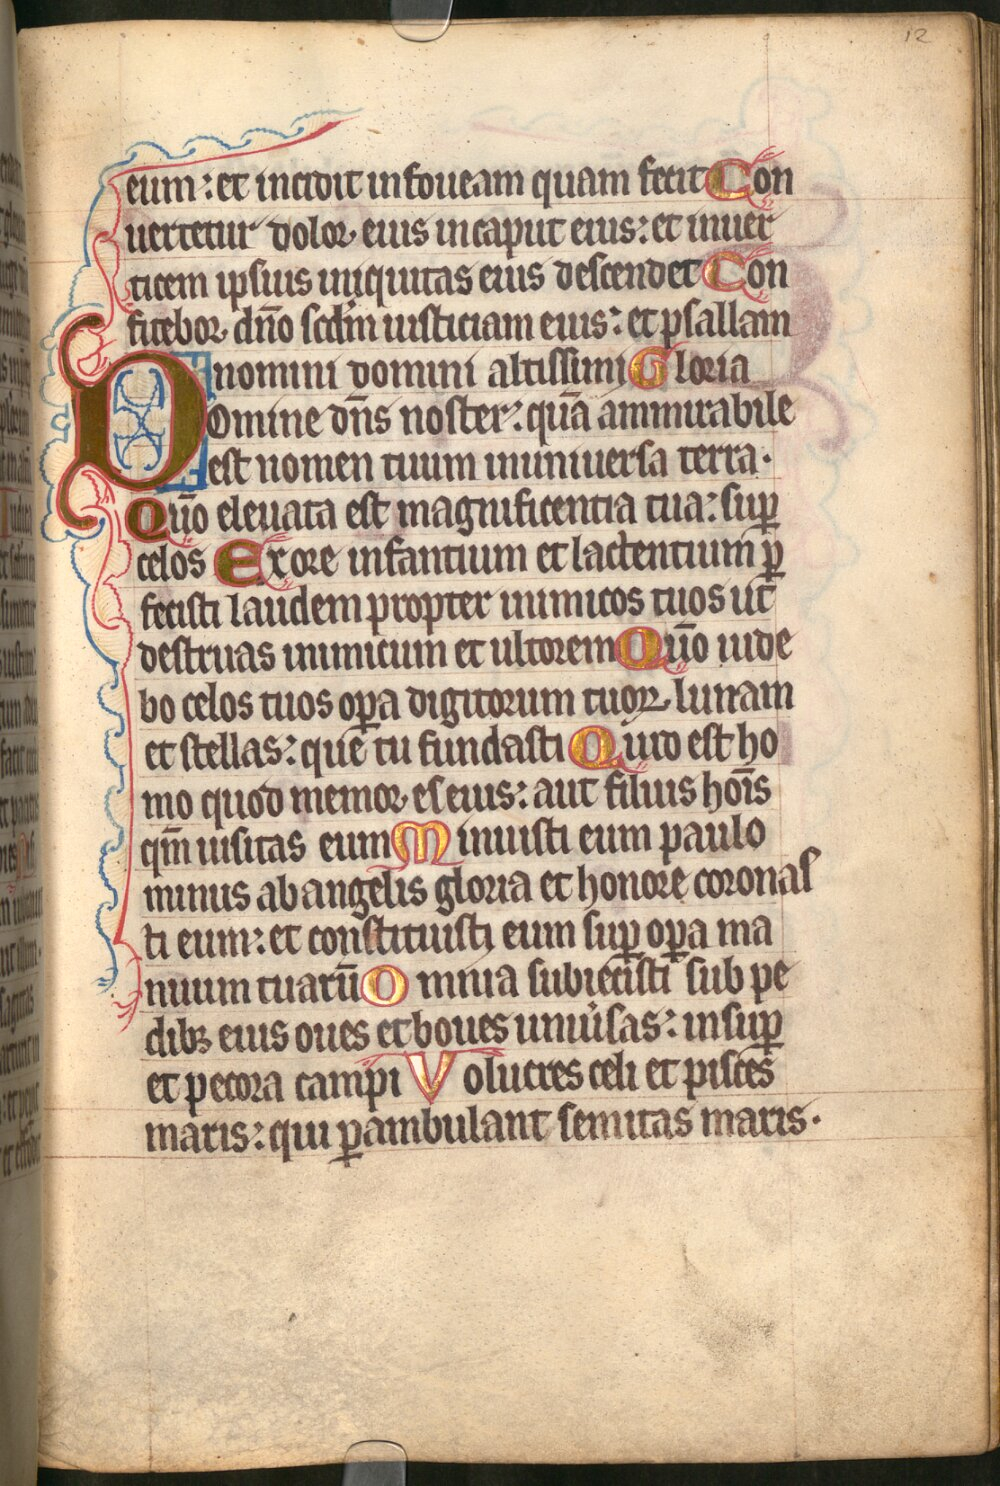 12
eum: et incidit in foueam quam fecit Con
uertetur dolor eius in caput eius: et in uer
ticem ipsius iniquitas eius descendet Con
fitebor dn̄o scd̄m iusticiam eius: et psallam
nomini domini altissimi Gloria
Domine dn̄s noster: quā ammirabile
est nomen tuum in uniuersa terra.
Quō eleuata est magnificentia tua: suꝑ
celos Ex ore infantium et lactentium ꝑ
fecisti laudem propter inimicos tuos ut
destruas inimicum et ultorem Quō uide
bo celos tuos oꝑa digitorum tuoꝝ lunam
et stellas: que tu fundasti Quid est ho
mo quod memor es eius: aut filius hoīs
qm̄ uisitas eum Minuisti eum paulo
minus ab angelis gloria et honore coronas
ti eum: et constituisti eum suꝑ oꝑa ma
nuum tuarū Omnia subiecisti sub pe
dibꝫ eius oues et boues uniu̓sas: insuꝑ
et pecora campi Volucres celi et pisces
maris: qui ꝑambulant semitas maris.